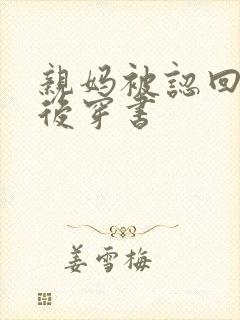 親媽被認回
後穿書
姜雪梅